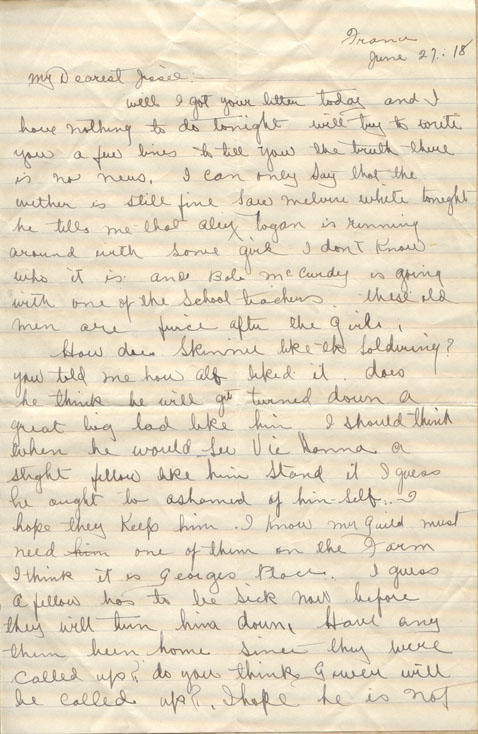 France
June 27:18
My Dearest Jessie:-
well I got your letter today and I
have nothing to do tonight will try to write
you a few lines to tell you the truth there
is no news, I can only say that the
wether is still fine Saw melvin white tonight
he tells me that alex Logan is running
around with some girl I don't Know
who it is and Bob McCurdy is going
with one of the School teachers. these old
men are firce after the Girls,
How does Skinnie like the Soldiring?
you told me how alf liked it does
he think he will get turned down a
great big lad like him I should think
when he would see Vic Hanna a
slight fellow like him Stand it I guess
he ought to ashamed of him-self. I
hope they Keep him. I Know mr Guild must
need him one of them on the Farm
I think it is Georges Place. I guess
a fellow has to be Sick now before
they will turn him down, Have any
them been home since they were
called up? do you think Gower will
be called up?, I hope he is not